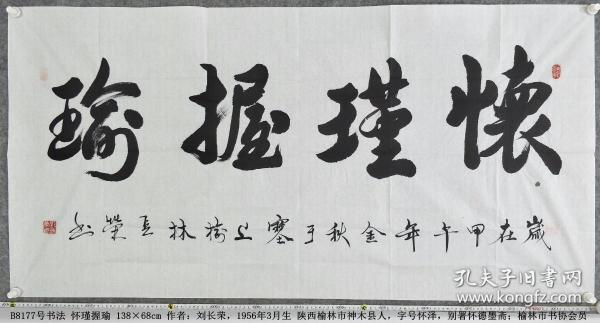 懷瑾握瑜
歲在甲午年金秋于塞上榆林長榮書
孔夫子旧书网
B8177号书法 怀瑾握瑜 138×68cm 作者:刘长荣,1956年3月生 陕西榆林市神木县人,字号怀泽,别署怀德墨斋;榆林市书协会员